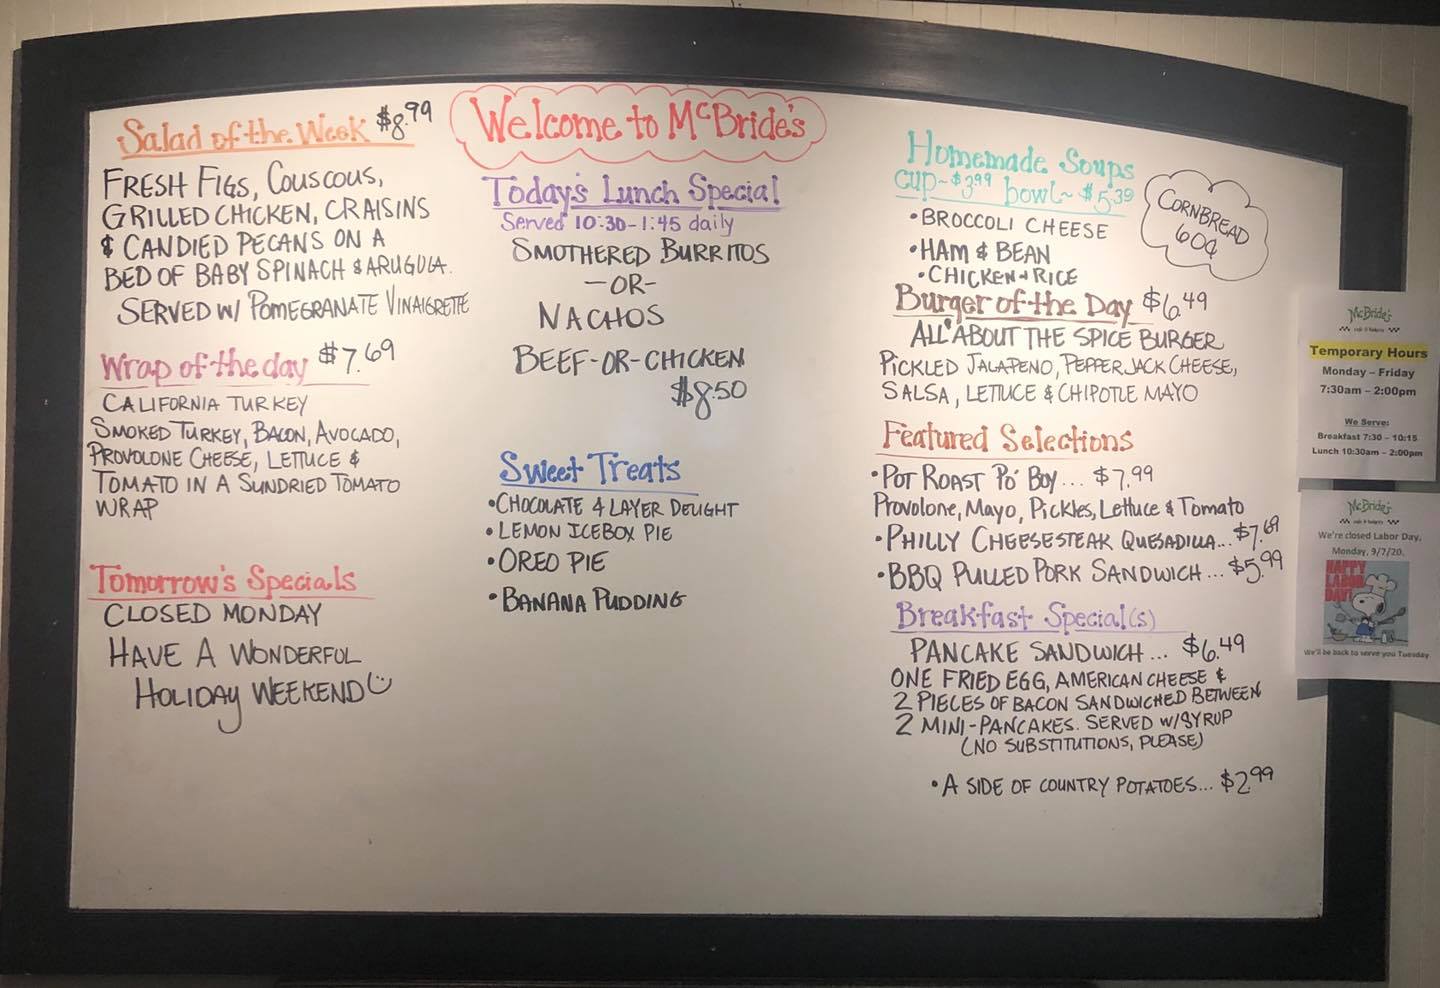 Salad of the Week $8.99
FRESH FIGS, COUSCOUS,
GRILLED CHICKEN, CRAISINS
& CANDIED PECANS ON A
BED OF BABY SPINACH & ARUGULA.
SERVED W/ POMEGRANATE VINAIGRETTE
Wrap of the day $7.69
CALIFORNIA TURKEY
SMOKED TURKEY, BACON, AVOCADO,
PROVOLONE CHEESE, LETTUCE &
TOMATO IN A SUNDRIED TOMATO
WRAP
Tomorrow's Specials
CLOSED MONDAY
HAVE A WONDERFUL
HOLIDAY WEEKEND
Welcome to McBride's
Today's Lunch Special
Served 10:30-1:45 daily
SMOTHERED BURRITOS
-OR-
NACHOS
BEEF-OR-CHICKEN
$8.50
Sweet Treats
• CHOCOLATE 4 LAYER DELIGHT
• LEMON ICEBOX PIE
• OREO PIE
• BANANA PUDDING
Homemade Soups
cup~$3.99 bowl~$5.39
• BROCCOLI CHEESE
• HAM & BEAN
• CHICKEN & RICE
CORNBREAD
60¢
Burger of the Day $6.49
ALL ABOUT THE SPICE BURGER
PICKLED JALAPENO, PEPPER JACK CHEESE,
SALSA, LETTUCE & CHIPOTLE MAYO
Featured Selections
• POT ROAST PO' BOY... $7.99
Provolone, Mayo, Pickles, Lettuce & Tomato
• PHILLY CHEESESTEAK QUESADILLA... $7.69
• BBQ PULLED PORK SANDWICH... $5.99
Breakfast Special(s)
PANCAKE SANDWICH... $6.49
ONE FRIED EGG, AMERICAN CHEESE &
2 PIECES OF BACON SANDWICHED BETWEEN
2 MINI-PANCAKES. SERVED W/SYRUP
(NO SUBSTITUTIONS, PLEASE)
• A SIDE OF COUNTRY POTATOES... $2.99
McBride's
cafe & bakery
Temporary Hours
Monday – Friday
7:30am – 2:00pm
We Serve:
Breakfast 7:30 – 10:15
Lunch 10:30am – 2:00pm
McBride's
cafe & bakery
We're closed Labor Day,
Monday, 9/7/20.
HAPPY
LABOR
DAY!
We'll be back to serve you Tuesday